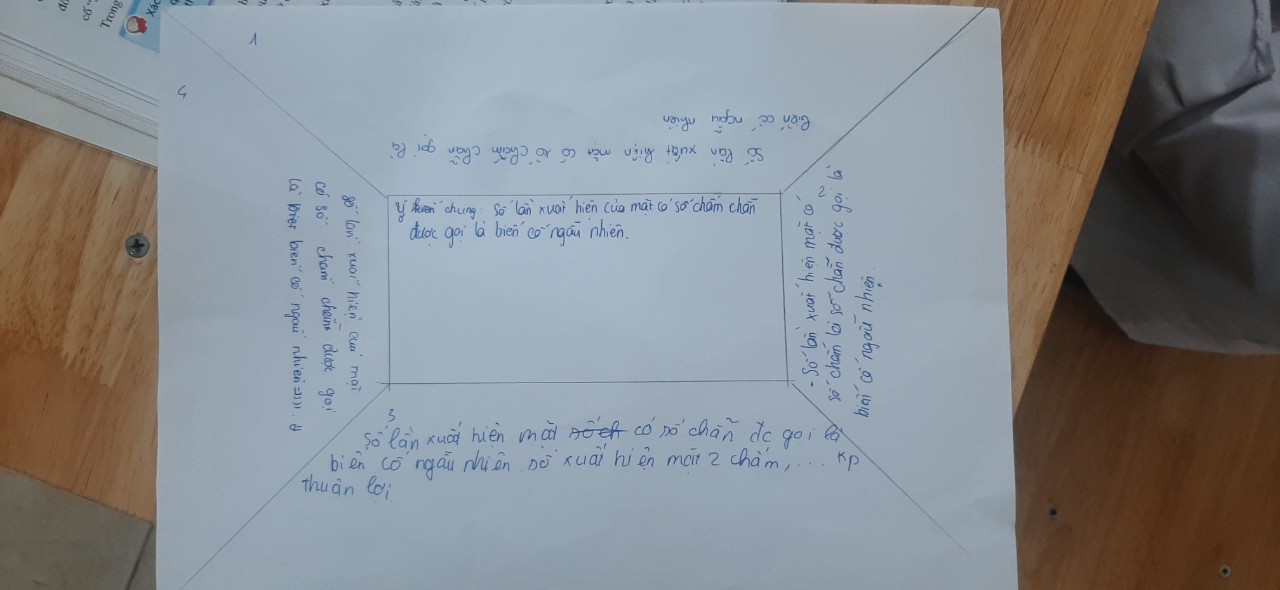 1
Số lần xuất hiện mặt có số chấm chẵn gọi là
biến cố ngẫu nhiên
Ý kiến chung: Số lần xuất hiện của mặt có số chấm chẵn
được gọi là biến cố ngẫu nhiên.
2
- Số lần xuất hiện mặt có
số chấm là số chẵn được gọi là
biến cố ngẫu nhiên.
3
Số lần xuất hiện mặt có số chẵn đc gọi là
biến cố ngẫu nhiên. số xuất hiện mặt 2 chấm, ... kp
thuận lợi
4
Số lần xuất hiện của mặt
có số chấm chẵn được gọi
là biến cố ngẫu nhiên
Trong
Xác